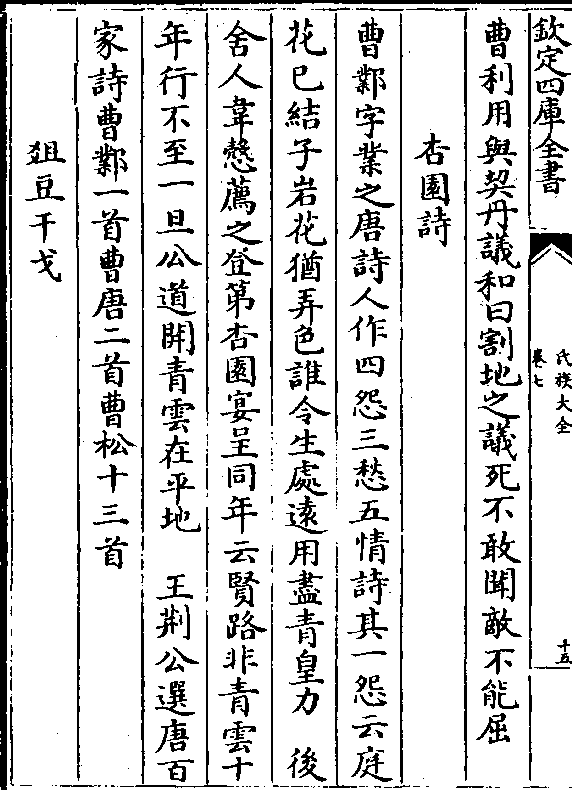 欽定四庫全書
氏族大全
卷七
十五
曹利用與契丹議和曰割地之議死不敢聞敵不能屈
杏園詩
曹鄴字業之唐詩人作四怨三愁五情詩其一怨云庭
花已結子岩花猶弄色誰令生處遠用盡青皇力　後
舍人韋慤薦之登第杏園宴呈同年云賢路非青雲十
年行不至一旦公道開青雲在平地　王荆公選唐百
家詩曹鄴一首曹唐二首曹松十三首
爼豆干戈